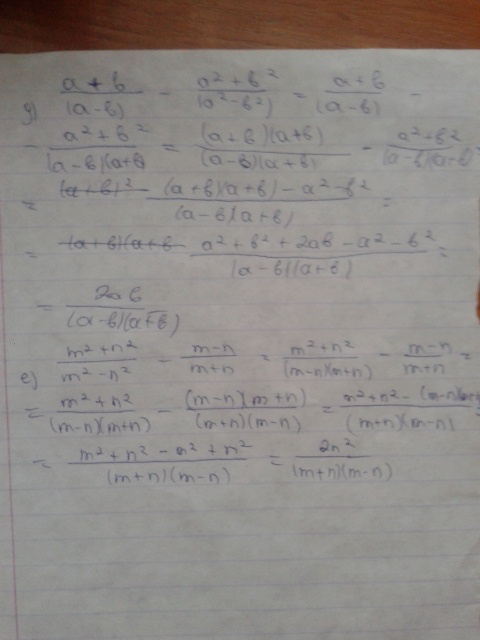 д) (a+b)/(a-b) - (a²+b²)/(a²-b²) = (a+b)/(a-b) -
- (a²+b²)/((a-b)(a+b)) = ((a+b)(a+b))/((a-b)(a+b)) - (a²+b²)/((a-b)(a+b)) =
= ((a+b)(a+b) - a² - b²)/((a-b)(a+b)) =
= (a²+b²+2ab-a²-b²)/((a-b)(a+b)) =
= 2ab/((a-b)(a+b))
е) (m²+n²)/(m²-n²) - (m-n)/(m+n) = (m²+n²)/((m-n)(m+n)) - (m-n)/(m+n) =
= (m²+n²)/((m-n)(m+n)) - ((m-n)(m+n))/((m+n)(m-n)) = (m²+n² - (m-n)(m+n))/((m+n)(m-n))
= (m²+n²-m²+n²)/((m+n)(m-n)) = 2n²/((m+n)(m-n))